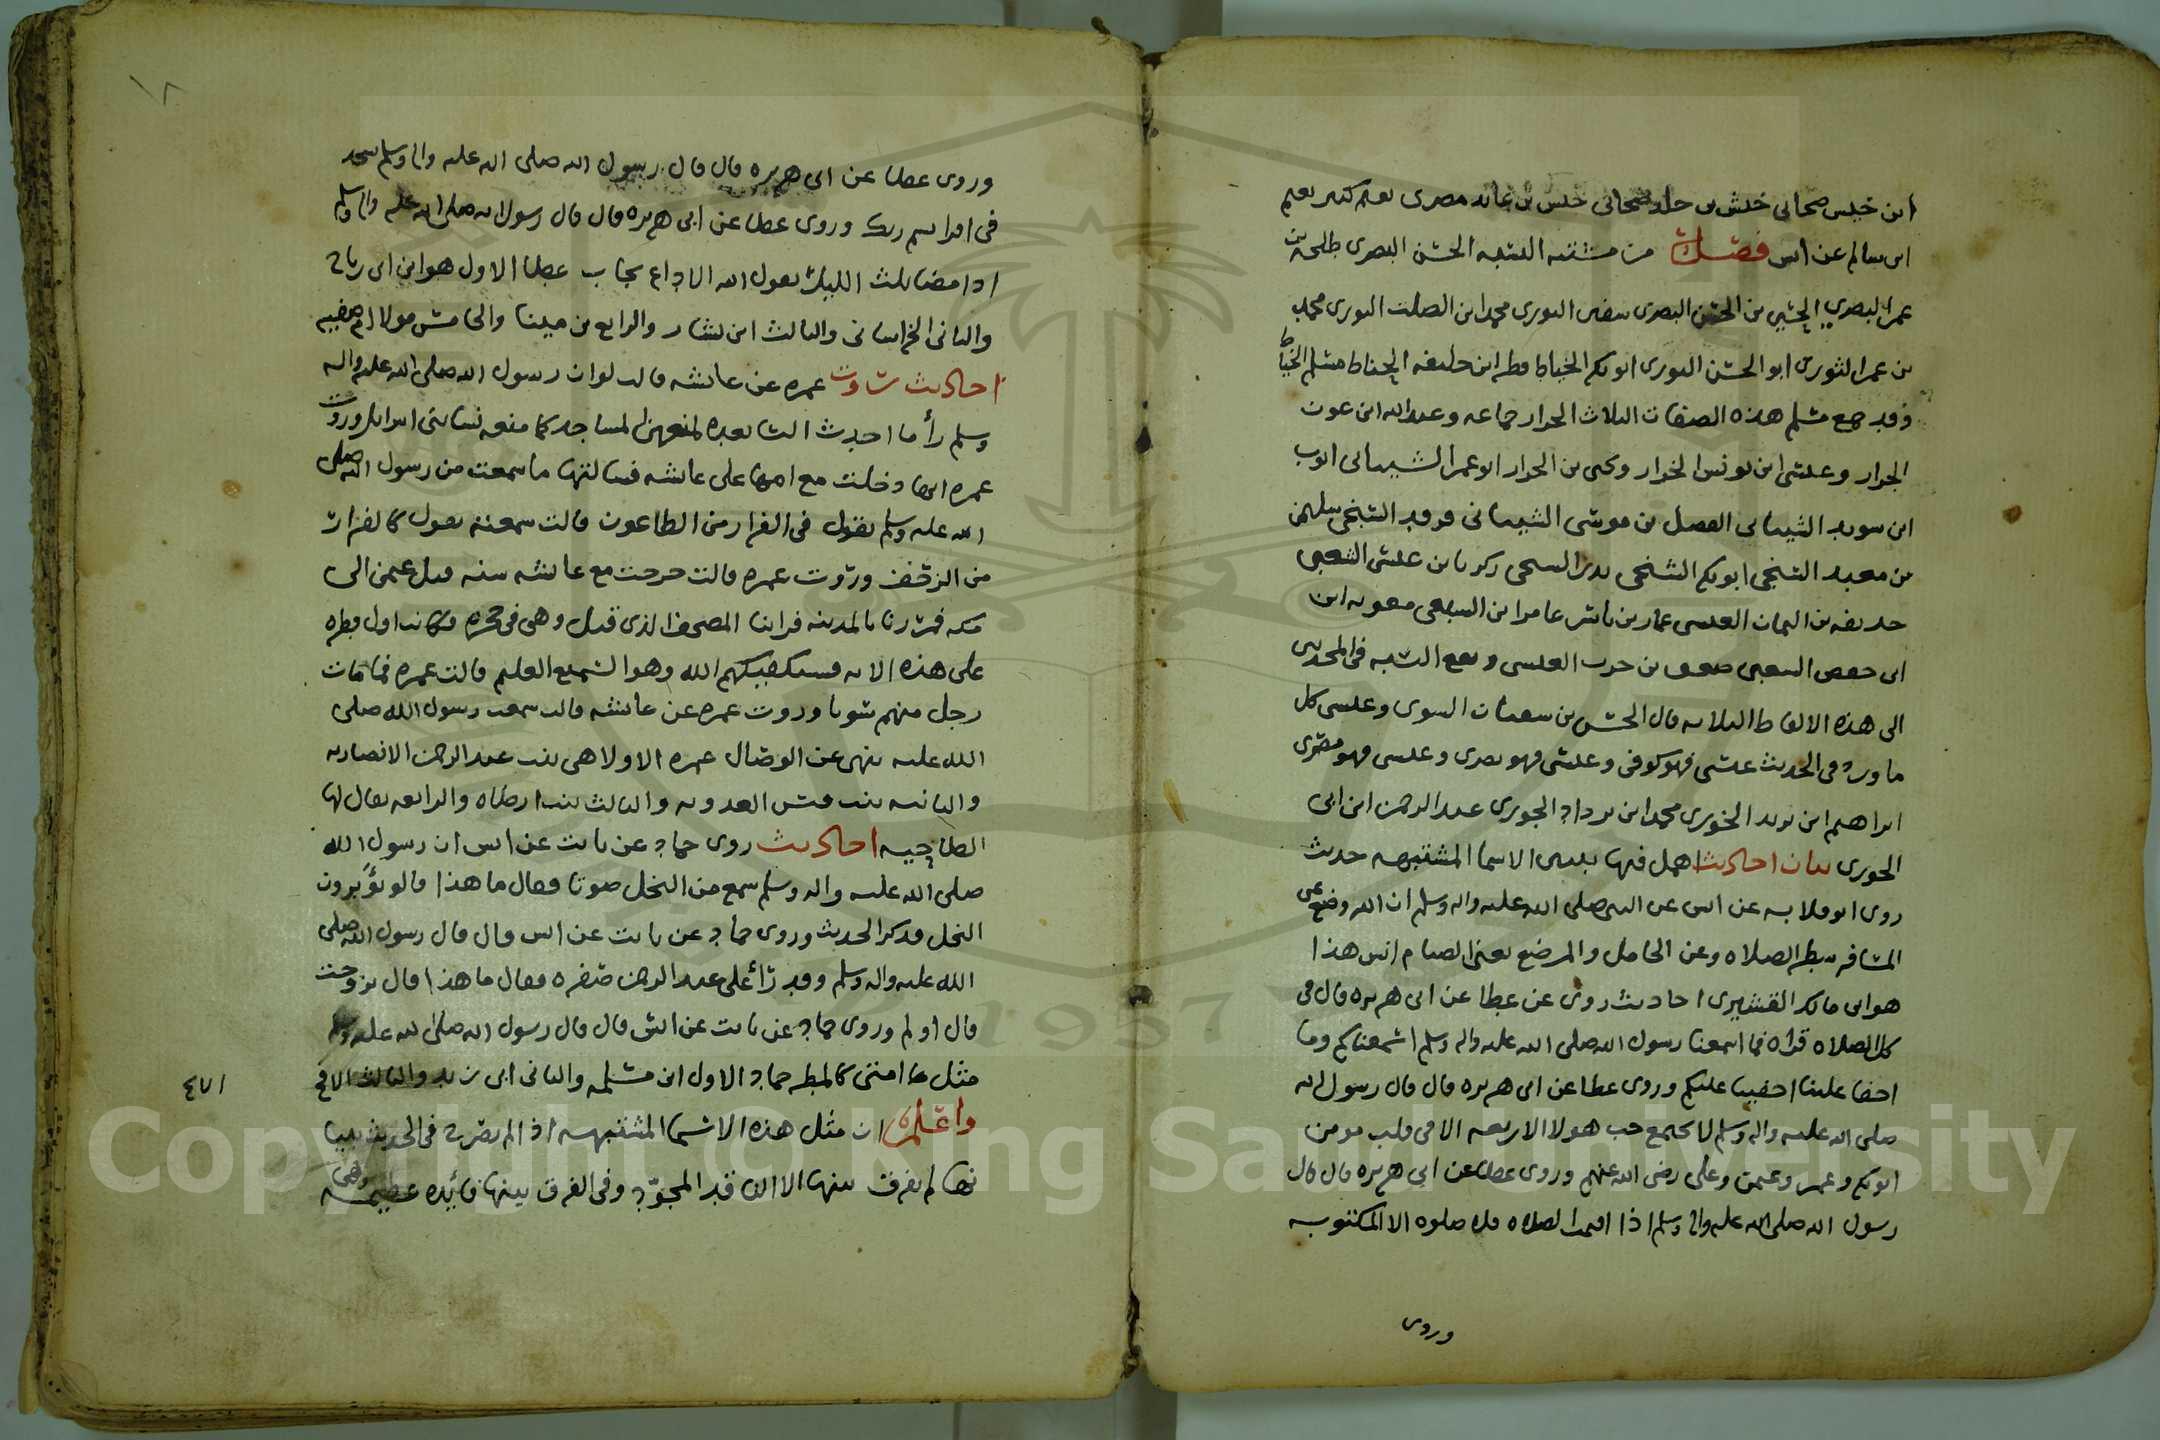 ابن خنيس صحابي خنيس بن صحابي مصري
ابن سالم عن انس فصل من مشتبه النسبه الحسن البصري طلحه بن
عمر البصري الحسن البصري سفين الثوري محمد ابن الصلت الثوري محمد
بن عمر الثوري ابو الحسن الثوري ابو بكر الخياط فطر ابن خليفه الحناط مسلم الخباط
وقد جمع مسلم هذه الصفات الثلاث الخراز جماعه وعبد الله ابن عون
الخراز وعيسى ابن يونس الخراز ويحيى بن الجزار ابو عمر الشيباني ايوب
ابن سويد السيباني الفضل بن موسى السيناني فرقد السبخي سليمن
بن معبد السنجي ابو بكر زكريا بن عيسى الشعبي
حذيفه بن اليمان العبسي عمار بن ياسر عامر ابن الشعبي معويه ابن
ابي حفص الشعبي بن حرب العيشي ويقع الشبه في المحدثين
الى هذه الالفاظ الثلاثه قال الحسن بن سفيان النسوي وعبسي كل
ما ورد في الحديث عبسي فهو كوفي وعيشي فهو بصري وعنسي فهو مصري
ابراهيم ابن يزيد الخوزي محمد ابن يزداد الجوري عبد الرحمن ابن ابي
الجوزي بيان احاديث اهمل فيها تبيين الاسما المشتبهه حديث
روى ابو قلابه عن انس عن النبي صلى الله عليه واله وسلم ان الله وضع عن
المسافر شطر الصلاه وعن الحامل والمرضع يعني الصيام انس هذا
هو ابن مالك القشيري احاديث روى عن عطا عن ابي هريره قال في
كل الصلاه قراه فما اسمعنا رسول الله صلى الله عليه واله وسلم اسمعناكم وما
اخفا علينا اخفينا عليكم وروى عطا عن ابي هريره قال قال رسول الله
صلى الله عليه واله وسلم لا يجتمع حب هولا الاربعه الا في قلب مومن
ابو بكر وعمر وعثمن وعلي رضي الله عنهم وروى عطا عن ابي هريره قال قال
رسول الله صلى الله عليه واله وسلم اذا اقيمت الصلاه فلا صلوه الا المكتوبه
وروى
١٨
وروى عطا عن ابي هريره قال قال رسول الله صلى الله عليه واله وسلم سجد
في اقرا باسم ربك وروى عطا عن ابي هريره قال قال رسول الله صلى الله عليه واله وسلم
اذا مضا ثلث الليل يقول الله الا داع يجاب عطا الاول هو ابن ابي رباح
والثاني الخراساني والثالث ابن يسار والرابع بن مينا والخامس مولا ام صفيه
احاديث روت عمره عن عائشه قالت لو ان رسول الله صلى الله عليه واله
وسلم رأ ما احدث النسا بعده لمنعهن المساجد كما منعه نسا بني اسرائيل وروت
عمره انها دخلت مع امها على عائشه فسالتها ما سمعت من رسول الله صلى
الله عليه وسلم يقول في الفرار من الطاعون قالت سمعته يقول كالفرار
من الزحف وروت عمره قالت خرجت مع عائشه سنه قتل عثمن الى
مكه فمررنا بالمدينه فراينا المصحف الذي قتل وهو في حجره فكانت اول قطره
على هذه الايه فسيكفيكهم الله وهو السميع العليم قالت عمره فما مات
رجل منهم سويا وروت عمره عن عائشه قالت سمعت رسول الله صلى
الله عليه ينهى عن الوصال عمره الاولا هي بنت عبد الرحمن الانصاريه
والثانيه بنت قيس العدويه والثالث بنت ارطاه والرابعه يقال لها
الطاحيه احاديث روى حماد عن ثابت عن انس ان رسول الله
صلى الله عليه واله وسلم سمع من النخل صوتا فقال ما هذا قالو يؤبرون
النخل فذكر الحديث وروى حماد عن ثابت عن انس قال قال رسول الله صلى
الله عليه واله وسلم وقد رأ على عبد الرحمن صفره فقال ما هذا قال تزوجت
قال اولم وروى حماد عن ثابت عن انس قال قال رسول الله صلى الله عليه وسلم
مثل امتي كالمطر حماد الاول ابن سلمه والثاني ابن زيد والثالث الابح
واعلم ان مثل هذه الاسما المشتبهه اذا لم يصرح في الحديث
لم يفرق بينها الا الناقد المجود وفي الفرق بينها فائده عظيمه وهي
Copyright © King Saud University
1957